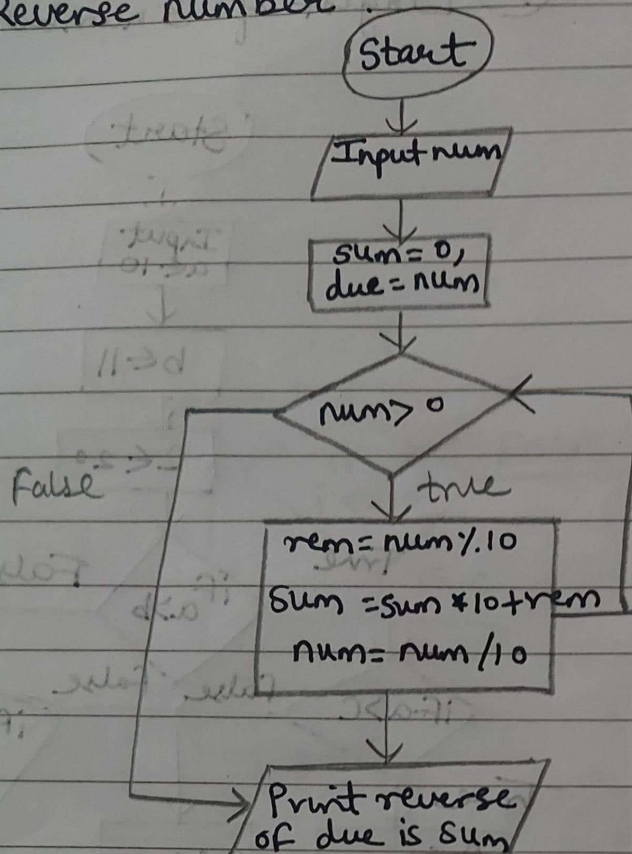 Reverse number.
Start
Input num
sum = 0,
due = num
num > 0
False
true
rem = num % 10
sum = sum * 10 + rem
num = num / 10
Print reverse
of due is sum